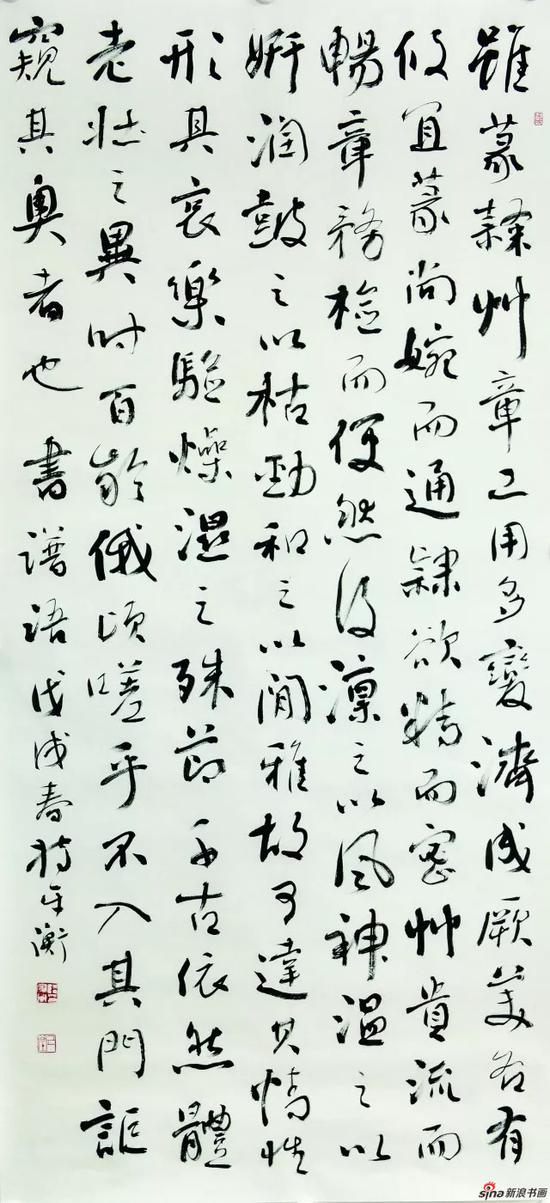 雖篆隸艸章工用多變濟成厥美各有
攸宜篆尚婉而通隸欲精而密艸貴流而
暢章務檢而便然後凜之以風神溫之以
妍潤鼓之以枯勁和之以閒雅故可達其情性
形其哀樂驗燥濕之殊節千古依然體
老壯之異時百齡俄頃嗟乎不入其門詎
窺其奧者也 書譜語戊戌春 衡
sina新浪书画